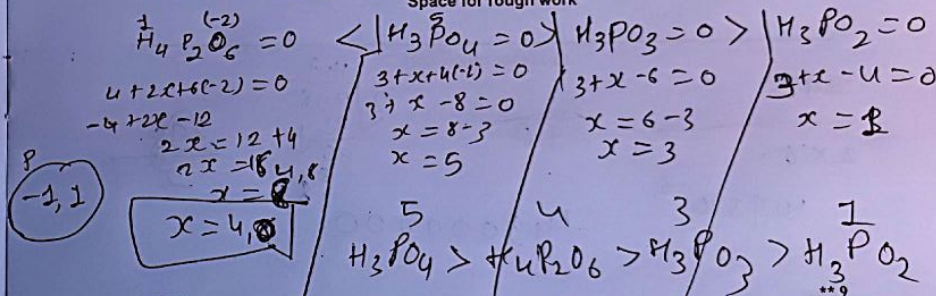 Space for rough work
1 (-2)
H4 P2O6 = 0
4+2x+6(-2) = 0
-4+2x-12
2x = 12+4
2x = 16 4,8
x =
x = 4,
P
-1, 1
5
< H3PO4 = 0 >
3+x+4(-2) = 0
3+x-8=0
x = 8-3
x = 5
H3PO3 = 0 >
3+x-6=0
x = 6-3
x = 3
H3PO2 = 0
3+x-4=0
x = 1
5 4 3 1
H3PO4 > H4P2O6 > H3PO3 > H3PO2